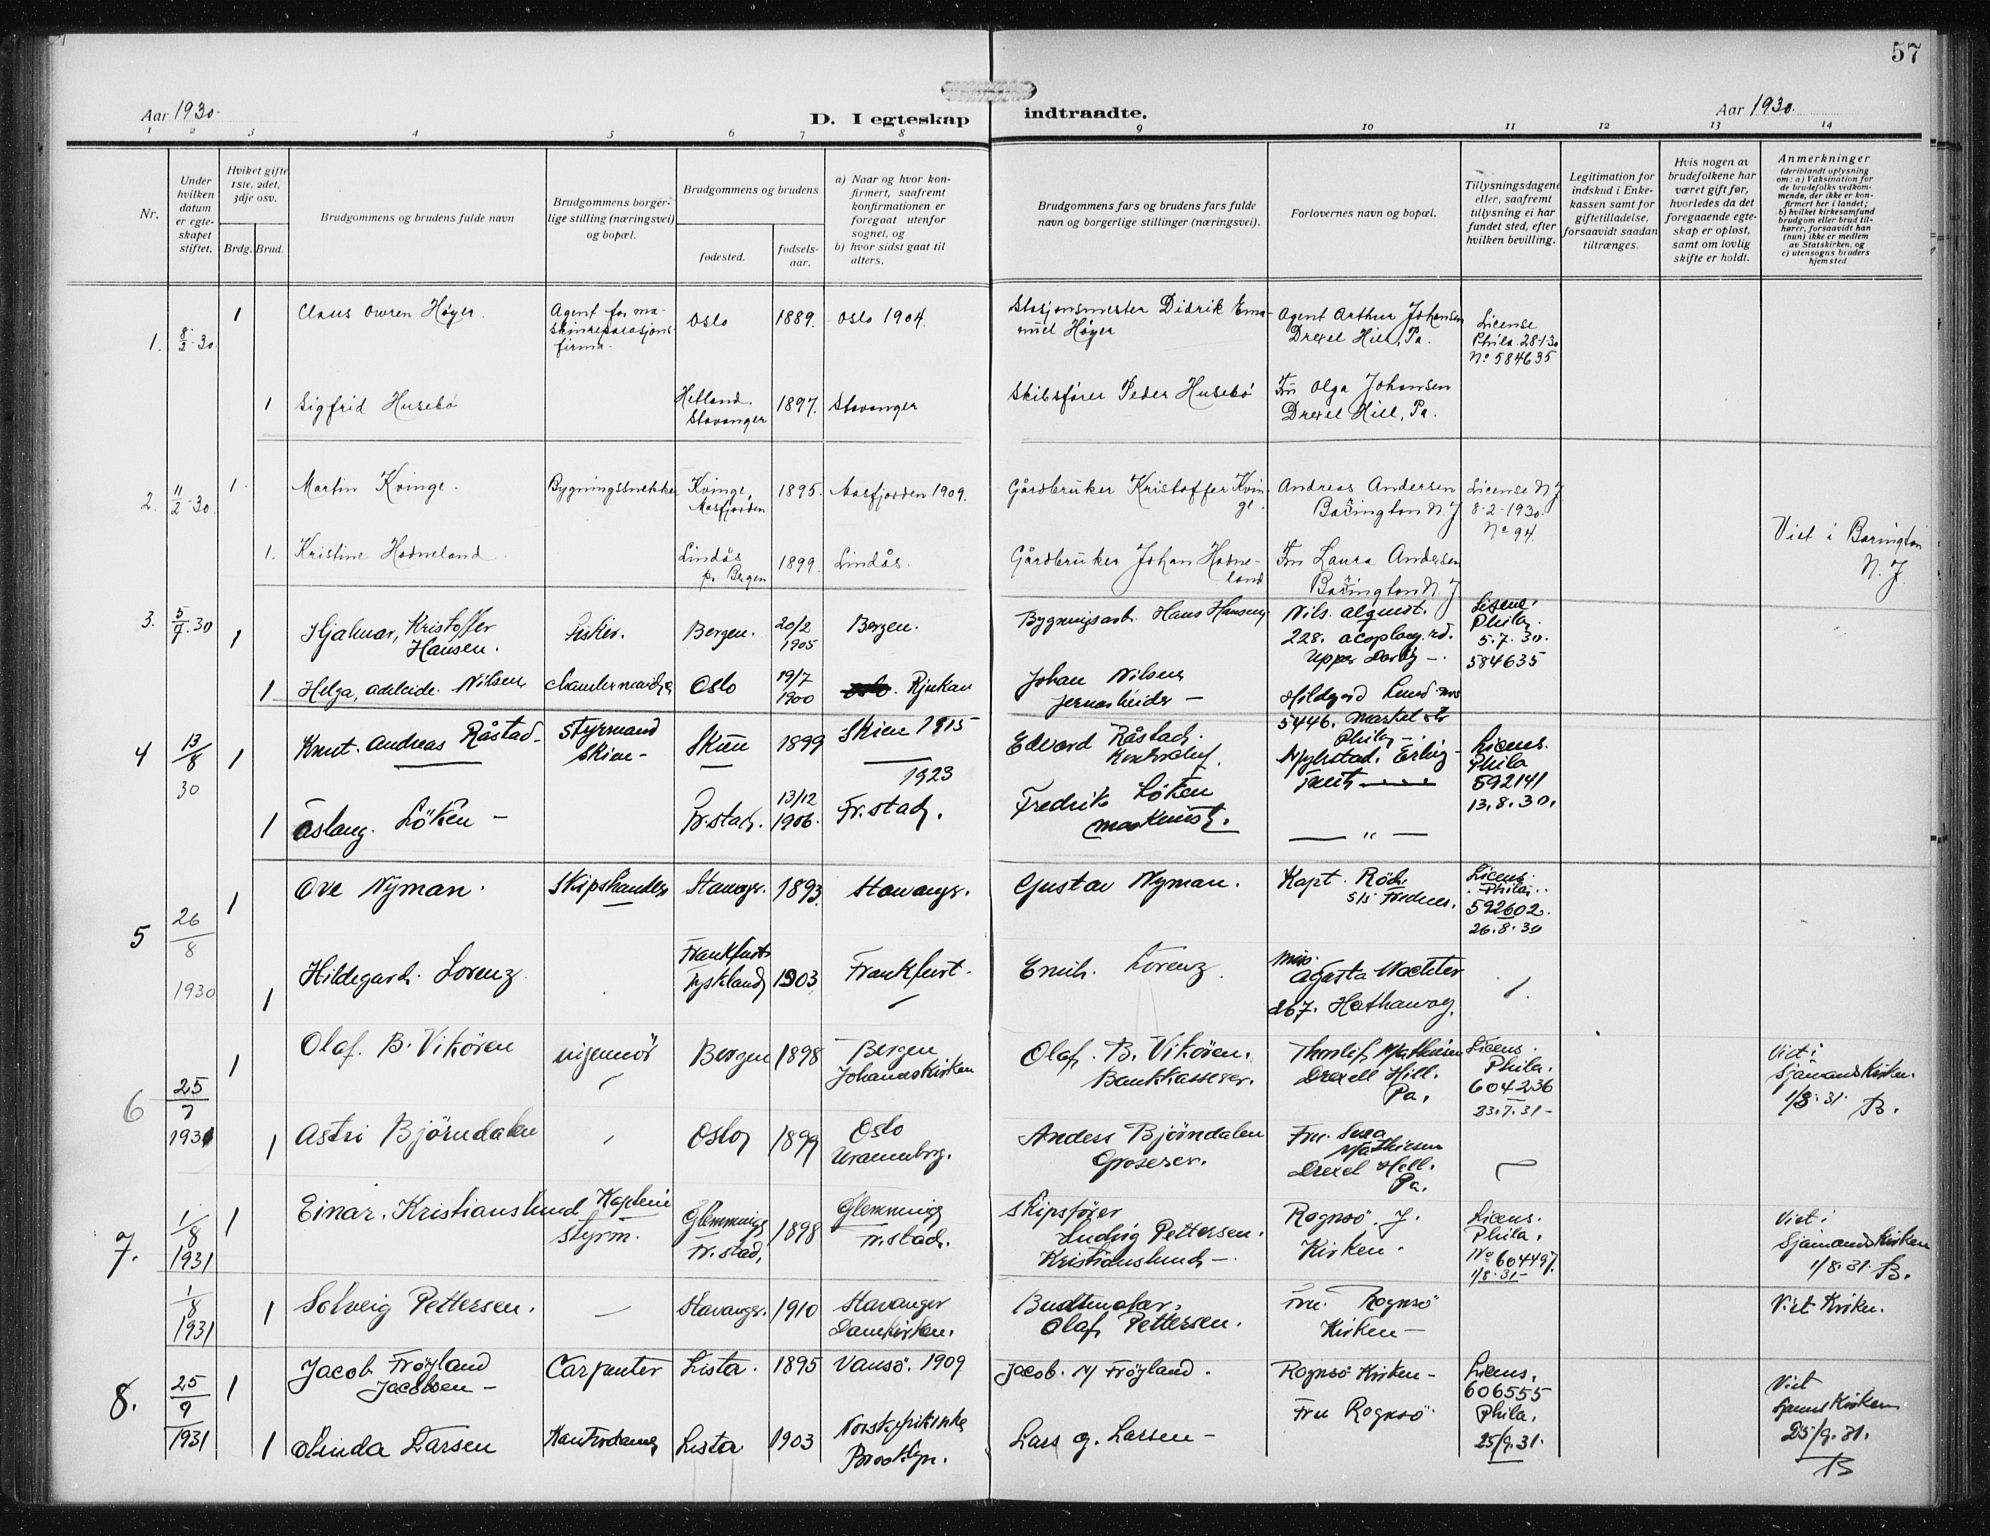 57
Aar 1930.
D. I egteskap indtraadte.
Aar 1930.
1 2 3 4 5 6 7 8 9 10 11 12 13 14
Nr.
Under
hvilken
datum
er egte-
skapet
stiftet.
Hviket gifte
1ste, 2det,
3dje osv.
Brdg. Brud.
Brudgommens og brudens fulde navn
Brudgommens borger-
lige stilling (næringsvei)
og bopæl.
Brudgommens og brudens
fødested.
fødsels-
aar.
a) Naar og hvor kon-
firmert, saafremt
konfirmationen er
foregaat utenfor
sognet, og
b) hvor sidst gaat til
alters.
Brudgommens fars og brudens fars fulde
navn og borgerlige stillinger (næringsvei).
Forlovernes navn og bopæl.
Tillysningsdagene
eller, saafremt
tillysning ei har
fundet sted, efter
hvilken bevilling.
Legitimation for
indskud i Enke-
kassen samt for
giftetilladelse,
forsaavidt saadan
tiltrænges.
Hvis nogen av
brudefolkene har
været gift før,
hvorledes da det
foregaaende egte-
skap er opløst,
samt om lovlig
skifte er holdt.
Anmerkninger
(deriblandt oplysning
om: a) Vaksination for
de brudefolks vedkom-
mende, der ikke er kon-
firmert her i landet;
b) hvilket kirkesamfund
brudgom eller brud til-
hører, forsaavidt han
(hun) ikke er medlem
av Statskirken, og
c) utensogns bruders
hjemsted
1. 8/2-30. 1 Claus Owren Høyer.
Agent for ma-
skinreparasjons-
firma.
Oslo 1889. Oslo 1904.
Stasjonsmester Didrik Ema-
nuel Høyer
Agent Arthur Johansen
Drexel Hill, Pa.
License
Phila. 28-1-30
No 584635
1 Sigfrid Husebö
Hetland.
Stavanger
1897. Stavanger
Skibsfører Peder Husebö
Fru Olga Johansen
Drexel Hill, Pa.
2. 11/2-30. 1. Martin Kvinge.
Bygningssnekker
Kvinge,
Masfjorden
1895. Masfjorden 1909.
Gårdbruker Kristoffer Kvin-
ge.
Andreas Andersen
Barrington N. J
License N J
8-2-1930.
No 94.
Viet i Barington
N. J.
1. Kristine Hodneland
Lindås
pr. Bergen
1899. Lindås.
Gårdbruker Johan Hodne-
land
Fru Laura Andersen
Barrington N. J
3. 5/7.30 1 Hjalmar, Kristoffer
Hansen.
Fisker. Bergen.
20/2
1905
Bergen.
Bygningsarb. Hans Hansen,
Nils.
228.
Upper Darby -.
Phila,
5.7.30.
584635
1 Helga, Adelaide. Nilsen,
Oslo
19/7
1900
Rjukan
Johan Nilsen
Hildgard Lund
5446. Market str
Phila -
4 13/8 30 1 Knut. Andreas Råstad -
Styrmand
Skien -
Skien 1899
Skien 1915
1923
Edvard Råstad.
Erling -
Licens.
Phila
592141
13.8.30.
1 Åslaug. Löken -
Fr.stad.
13/12
1906.
Fr.stad,
Fredrik Löken
Maskinist.
— " —
5 26/8 1930 1 Ove Nyman.
Skipshandler
Stavanger. 1893. Stavanger.
Gustav Nyman.
Kapt. Röd.
Licens.
Phila,
592602.
26.8.30
1 Hildegard. Lorenz
Frankfurt
Tyskland
1903 Frankfurt -
Emil. Lorenz
Miss.
Agusta Wachter
267. Hathaway,
6 25/7 1931 1 Olaf. B. Vikören
ingeniör Bergen 1898
Bergen
Johanneskirken
Olaf. B. Vikören,
Bankkasserer.
Thorleif Mathiesen
Drexell Hill.
Pa.
Licens.
Phila.
604236
23.7.31-
Viet i
Sjømandskirken.
1/8.31. B.
1 Astri Björndalen
Oslo, 1899
Oslo
Uranienborg.
Anders Björndalen
Grosserer.
Fru.
Mathiesen
Drexel Hill.
Pa.
7. 1/8 1931 1 Einar. Kristianslund
Kaptein
Styrm.
Glemminge
Fr.stad,
1898
Glemminge
Fr.stad.
Skipsfører
Ludvig Pettersen.
Kristianslund -
Rognsö. J.
Kirken.
Licens.
Phila,
No 604497.
1/8.31-
Viet i
Sjømandskirken
1/8.31. B.
1/8 1931 1 Solveig Pettersen.
Stavanger. 1910
Stavanger
Domkirken.
Olaf Pettersen.
Fru. Rognsö
Kirken -
Viet Kirken.
8. 25/9 1931 1 Jacob Fröyland
Jacobsen -
Carpenter Lista. 1895 Vansö. 1909
Jacob. M Fröyland.
Rognsö Kirken -
Licens,
606555
Phila,
25/9.31.
Viet
25/9.31.
B
1 Olinda Larsen
Lista 1903
Brooklyn.
Lars G. Larsen -
Fru Rognsö